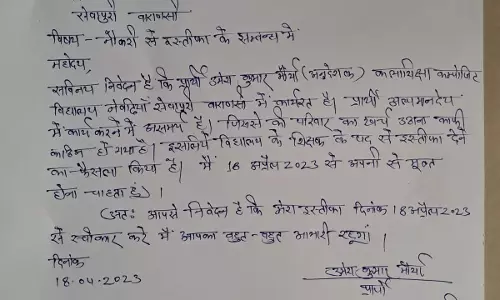 सेवापुरी वाराणसी
विषय - नौकरी से इस्तीफा के सम्बन्ध में
महोदय,
सविनय निवेदन है कि प्रार्थी उमेश कुमार मौर्या (अनुदेशक) कलाशिक्षा कम्पोजिट
विद्यालय सेवापुरी वाराणसी में कार्यरत है। प्रार्थी अल्पमानदेय
में कार्य करने में असमर्थ है। जिससे की परिवार का खर्च उठाना काफी
कठिन हो गया है। इसलिये विद्यालय के शिक्षक के पद से इस्तीफा देने
का फैसला किया है। मैं 18 अप्रैल 2023 से अपनी से मुक्त
होना चाहता हूं)।
(अतः आपसे निवेदन है कि मेरा इस्तीफा दिनांक 18 अप्रैल 2023
से स्वीकार करे मैं आपका बहुत-बहुत आभारी रहूगां।
दिनांक
18.04.2023
उमेश कुमार मौर्या
प्रार्थी